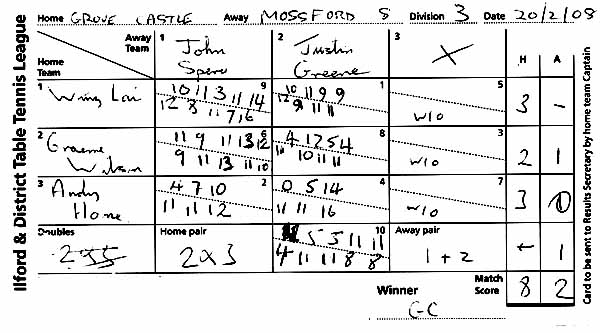 Ilford & District Table Tennis League
Home GROVE CASTLE Away MOSSFORD S Division 3 Date 20/2/08
Away Team
Home Team
1 John
2 Justin Greene
3 X
H A
1
9
10 11 3 11 14
12 8 11 7 16
1
10 11 9 9
12 9 11 11
5
w/o
3 -
2 Graeme
6
11 9 11 13 12
9 11 13 11 10
8
4 12 5 4
11 10 11 11
3
w/o
2 1
3 Andy Horne
2
4 7 10
11 11 12
4
0 5 14
11 11 16
7
w/o
3 0
Doubles
Home pair
2 x 3
10
5 5 11 11
4 11 11 8 8
Away pair
1 + 2
- 1
Winner
GC
Match Score
8 2
Card to be sent to Results Secretary by home team Captain